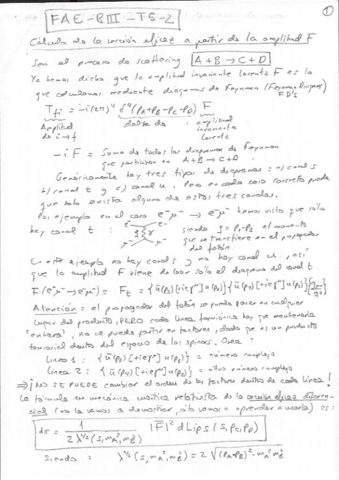 FAE-BIII-T5-2
1
Cálculo de la sección eficaz a partir de la amplitud F
Sea el proceso de scattering A + B → C + D
Ya hemos dicho que la amplitud invariante Lorentz F es la
que calculamos mediante diagramas de Feynman (Feynman Diagrams)
FD's
T_fi = -i(2π)⁴ δ⁴(p_A+p_B-p_C-p_D) F
Amplitud de i→f
delta de
amplitud invariante Lorentz
-i F = Suma de todos los diagramas de Feynman
que participan en A+B → C+D.
Genéricamente hay tres tipos de diagramas: a) canal s
b) canal t y c) canal u. Pero en cada caso concreto puede
que solo exista alguno de estos tres canales.
Por ejemplo en el caso e⁻μ⁻ → e⁻μ⁻ hemos visto que solo
hay canal t :
siendo q = el momento
que se transfiere en el propagador
del fotón
En este ejemplo no hay canal s y no hay canal u, así
que la amplitud F viene dada sólo el diagrama del canal t.
F(e⁻μ⁻→e⁻μ⁻) = F_t =
Atención: el propagador del fotón se puede poner en cualquier
lugar del producto, PERO cada línea fermiónica hay que mantenerla
"entera", no se puede partir en factores, dado que es un producto
tensorial dentro del espacio de los spinores. O sea:
línea 1: = número complejo
línea 2: = otro número complejo
⇒ ¡NO SE PUEDE cambiar el orden de los factores dentro de cada línea!
La fórmula en mecánica cuántica relativista de la sección eficaz diferen-
cial (no la vamos a demostrar, sólo vamos a aprender a usarla) es:
dσ = 1 / 2 λ^{1/2}(s, m_A², m_B²) |F|² d Lips (s, p_C, p_D)
Siendo: λ^{1/2}(s, m_A², m_B²) = 2 √((p_A·p_B)² - m_A² m_B²)